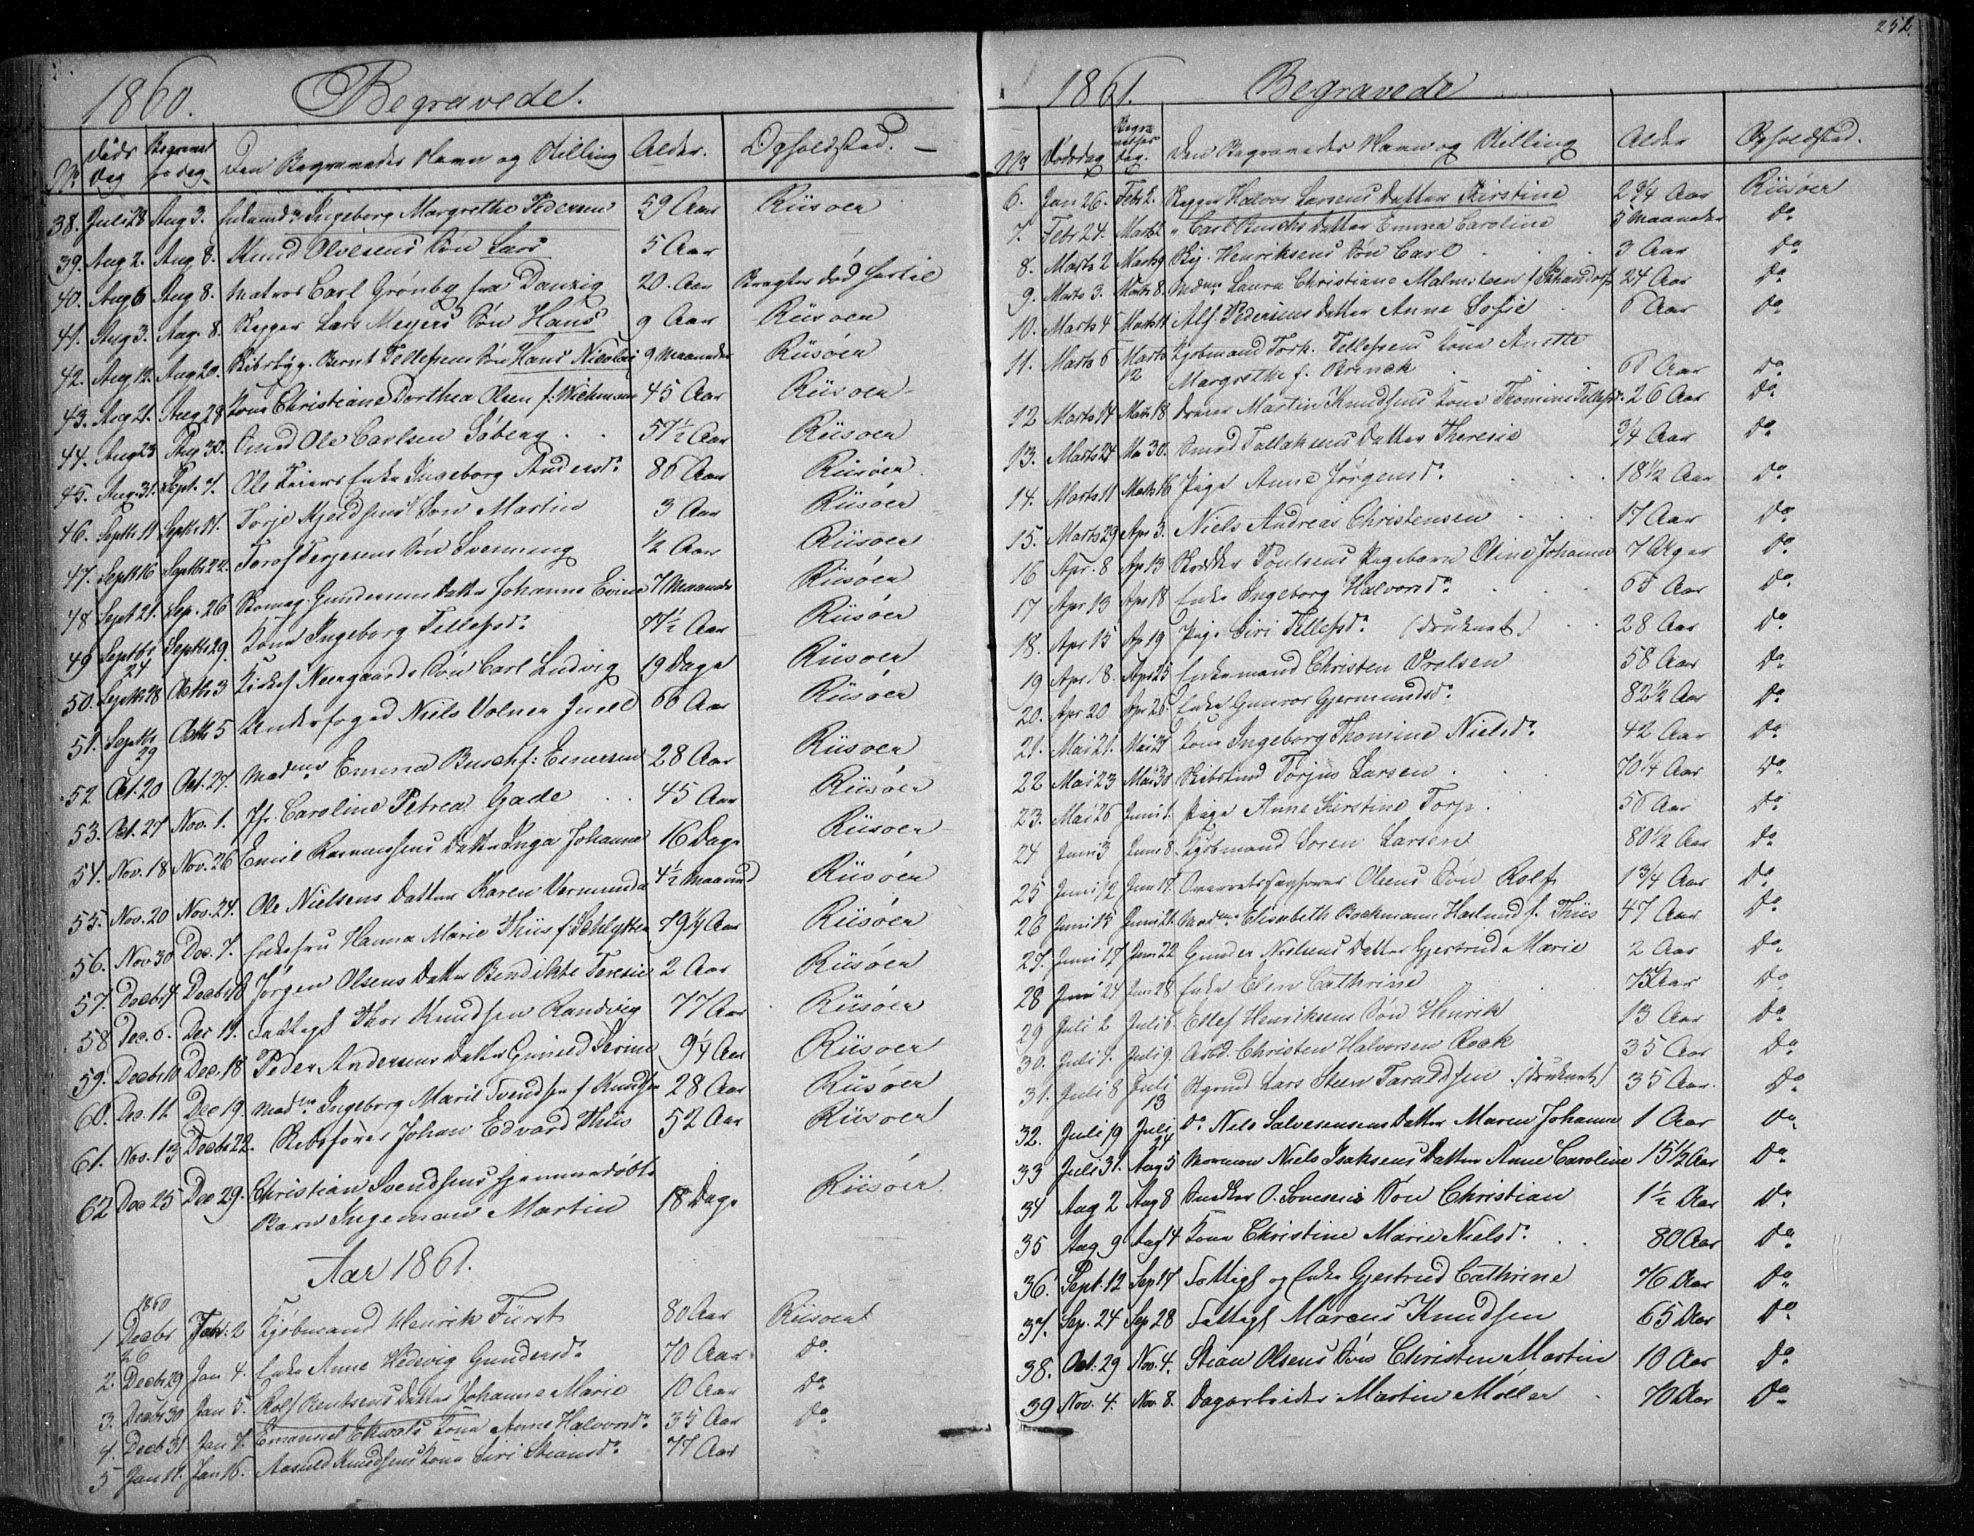 252.
1860. Begravede.
No. Døds Dag Begravelses Dag Den Begravedes Navn og Stilling Alder. Opholdsted.
38. Juli 28 Aug 3. Ingeborg Margrethe Pedersen 59 Aar Riisøer
39. Aug 2. Aug 8. Knud Olvesens Søn Lars 5 Aar
40. Aug 6 Aug 8. Matros Carl Gronby fra Danzig 20. Aar Bragtes død hertil
41. Aug 3. Aug. 8. Rigger Lars Meyers Søn Hans 9 Aar Riisøer
42. Aug 12. Aug 20. Skibsbyg. Bernt Tellefsens Søn Hans Nicolai 9 Maaneder Riisøer
43. Aug 21. Aug 28 Kone Christiane Dorthea Olsen f. Wichman 45 Aar Riisøer
44. Aug 23 Aug 30. Smed Ole Carlsen Søberg 57½ Aar Riisøer
45. Aug. 31. Sept. 7. Ole Enke Ingeborg Andersdr. 86 Aar Riisøer
46. Septbr 11 Septbr 17. Torje Kjeldsens Søn Martin 3 Aar Riisøer
47. Septbr 16 Septbr 22. Terjesens Søn Svenning ½ Aar Riisøer
48 Sept 21. Sep. 26 Gundersens Datter Johanne 7 Maaneder Riisøer
49 Septbr 24 Septbr 29. Kone Ingeborg Tellefsdr. 77½ Aar Riisøer
50. Septbr 28 Octbr 3 Neergaards Søn Carl Ludvig 19 Dage Riisøer
51. Septbr 29 Octbr 5 Underfoged Niels Volner Juell 66 Aar Riisøer
52 Oct. 20 Oct. 27. Madme Emma Busch f: Evensen 28 Aar Riisøer
53. Oct. 27 Nov. 1. Jfr. Caroline Petrea Gade 45 Aar Riisøer
54. Nov. 18 Nov. 26 Emil Rasmussens Datter Inga Johanne 16 Dage Riisøer
55. Nov. 20 Nov. 24. Ole Nielsens Datter Karen 4½ Maaned Riisøer
56. Nov 30 Dec. 7. Enkefru Hanna Marie Thiis f Schlytter 79¼ Aar Riisøer
57. Decbr 4 Decbr 8 Jørgen Olsens Datter Bendikte Teresie 2 Aar Riisøer
58 Dec. 6. Dec 14. Fattigl Thor Knudsen Randvig 77 Aar Riisøer
59. Decbr 10 Dec. 18 Peder Andersens Datter Gunild 9¼ Aar Riisøer
60. Dec. 12 Dec 19. Madme Ingeborg Marie Svendsen f Knudsen 28 Aar Riisøer
61. Nov. 13 Decbr 22. Skibsfører Johan Edvard Thiis 52 Aar Riisøer
62 Dec 25 Dec 29. Christian Svendsens hjemmedøbte
Barn Ingeman Martin 18 Dage Riisøer
Aar 1861.
1860
1 Decbr 26 Jan. 2 Kjøbmand Henrik Fürst 80 Aar Riisøer
2. Decbr 29 Jan 4. Enke Anne Hedwig Gundersdr. 70 Aar do.
3. Decbr 30 Jan 5. Rolf Knutsens Datter Johanne Marie 10 Aar do
4. Decb 31 Jan 7. Emanuel Kone Anne Halvorsdr. 35 Aar do
5 Jan 11. Jan 16. Aasuld Knudsens Kone Siri Steansdr. 77 Aar
1861. Begravede
No. Dødsdag Begravelses Dag. Den Begravedes Navn og Stilling Alder Opholdsted.
6. Jan 26. Febr 2. Rigger Halvor Larsens Datter Kirstine 2¾ Aar Riisøer
7. Febr 24. Marts 2 Carl Buschs Datter Emma Caroline 3 Maaneder do
8. Marts 2 Marts 9 Henriksens Søn Carl 3 Aar do
9. Marts 3. Marts 8. Madme Laura Christiane Malmsteen f Schandorf 24 Aar do
10. Marts 4 Marts 11 Alf Pedersens Datter Anne Sofie 6 Aar do
11. Marts 6 Marts 12 Kjøbmand Tork. Tellefsens Kone Anette
Margrethe f. Brinck 61 Aar do
12 Marts 14 Marts 18 Martin Knudsens Kone Thomine Tellefsdr. 26 Aar do
13. Marts 24 Mar 30. Smed Tallaksens Datter Theresie ¾ Aar do
14. Marts 11 Marts 16 Pige Anne Jørgensdr. 18½ Aar do
15. Marts 29 Apr 3. Niels Andreas Christensen 17 Aar do
16 Apr. 8 Apr 13 Skrædder Poulsens Pigebarn Oline Johanne 7 Uger do
17 Apr 13 Apr 18 Enke Ingeborg Halvorsdr. 65 Aar do
18. Apr 15 Ap 19 Pige Siri Tellefsdr. (druknet) 28 Aar do
19 Apr 18. Apr 25 Enkemand Christen Orelsen 58 Aar do
20. Apr 20 Apr 26. Enke Gunvor Gjermundsdr. 82½ Aar do
21. Mai 21. Mai 28 Kone Ingeborg Thomine Nielsdr. 42 Aar do
22 Mai 23 Mai 30 Skibstmd Torjus Larsen 70¼ Aar do
23. Mai 26 Juni 1. Pige Anne Kirstine Torp. 56 Aar do
24 Juni 3 Juni 8. Kjøbmand Soren Larsen 80½ Aar do
25 Juni 12 Juni 17. Olsens Søn Rolf 1¾ Aar do
26 Juni 15 Juni 21. Madme Elisabeth Bockmann Haslund f. Thiis 47 Aar do
27. Juni 17 Juni 22 Gunder Nielsens Datter Gjertrud Marie 2 Aar do
28 Juni 24 Juni 28 Enke Elen Cathrine 75 Aar do
29 Juli 2 Juli 6 Ellef Henriksens Søn Henrik 13 Aar do
30. Juli 7. Juli 9 Arbd. Christen Halvorsen Bock 35 Aar do
31. Juli 8 Juli 13 Lars Steen Taraldsen (druknet) 35 Aar do
32. Juli 19 Juli 24 do Nels Salvesensens Datter Maren Johanne 1 Aar do
33 Juli 31. Aug 5 Niels Isaksens Datter Anne Caroline 15½ Aar do
34 Aug 2 Aug 8 Snedker O. Søn Christian 1½ Aar do
35 Aug 9 Aug 4 Kone Christine Marie Nielsdr. 80 Aar do
36. Sept. 12 Sep 17 Fattigl og Enke Gjertrud Cathrine 76 Aar do
37. Sep. 24 Sep 28 Fattigl Marcus Knudsen 65 Aar do
38. Oct. 29 Nov. 4. Stian Olsens Søn Christen Martin 10 Aar do
39 Nov. 4. Nov 8. Dagarbeider Martin Møller 70 Aar do